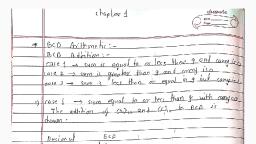 chapter 1
classmate
* BCD Arithmetic :-
BCD Addition :-
case 1 → sum is equal to or less than 9 and carry is 0
case 2 → sum is greater than 9 and carry is 0
case 3 → sum is less than or equal to 9 but carry is
1) case 1 → sum equal to or less than 9 with carry 0
The addition of and in BCD is
shown.
Decimal BCD